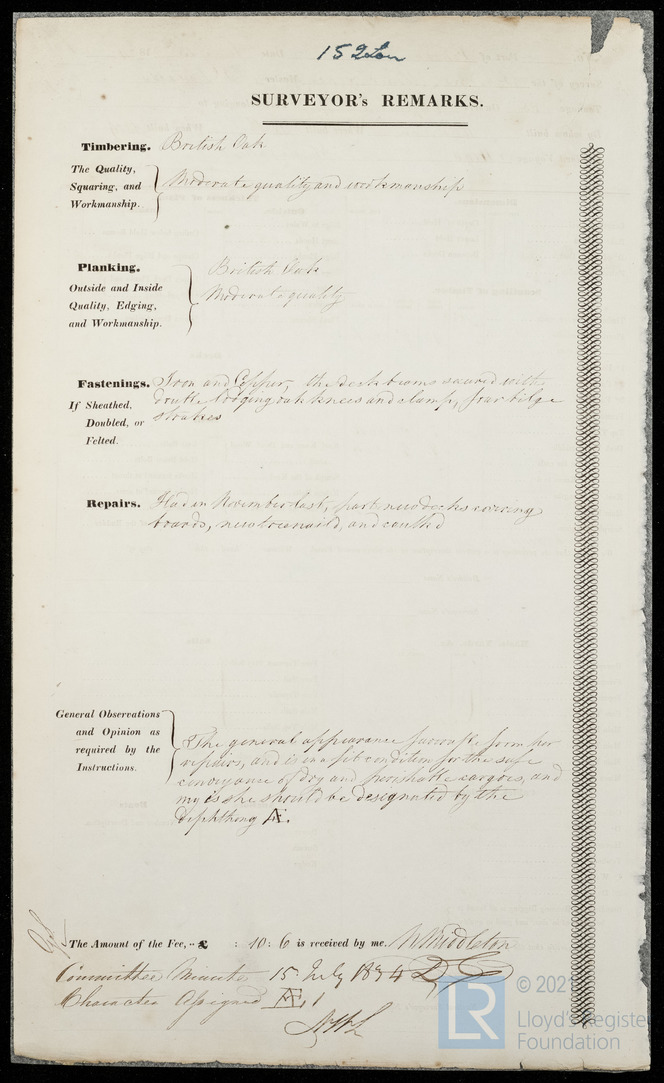 152 Lon
SURVEYOR's REMARKS.
Timbering. British Oak
The Quality,
Squaring, and Moderate quality and workmanship
Workmanship.
Planking. British Oak
Outside and Inside Moderate quality
Quality, Edging,
and Workmanship.
Fastenings. Iron and Copper, the deck beams secured with
If Sheathed, double lodging oak knees and clamp, four bilge
Doubled, or strakes
Felted.
Repairs. Had in November last, part new decks covering
boards, new treenail'd, and caulk'd
General Observations
and Opinion as The general appearance favorable from
required by the repairs, and is in a fit condition for the safe
Instructions. conveyance of dry and perishable cargoes, and
my is she should be designated by the
diphthong Æ.
The Amount of the Fee, - £ : 10 : 6 is received by me. Middleton
Committee Minute 15 July 1834
Character Assigned Æ. 1
LR
© 202
Lloyd's Register
Foundation